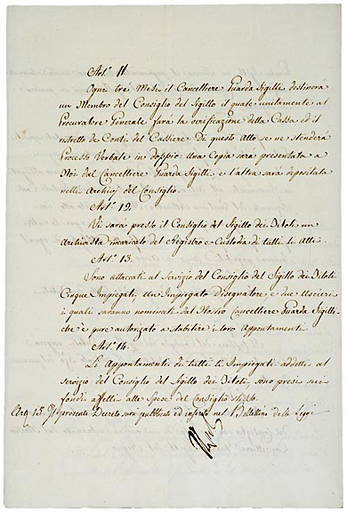 Art.° 11.
Ogni tré Mesi il Cancelliere Guarda Sigilli destinerà
un Membro del Consiglio del Sigillo il quale unitamente al
Procuratore Generale farà la verificazione della Cassa, ed il
ristretto de Conti del Cassiere. Di questo Atto se ne stenderà
Processo Verbale in doppio: Una Copia sarà presentata a
Noi dal Cancelliere Guarda Sigilli, e l'altra sarà depositata
nelli Archivj del Consiglio.
Art.° 12.
Vi sarà presso il Consiglio del Sigillo dei Titoli un
Archivista incaricato del Registro e Custodia di tutti li Atti.
Art.° 13.
Sono attaccati al Servizio del Consiglio del Sigillo dei Titoli
Cinque Impiegati, Un Impiegato Disegnatore, e due Uscieri
i quali saranno nominati dal Nostro Cancelliere Guarda Sigilli
che è pure autorizzato a stabilire i loro Appuntamenti.
Art.° 14.
Li Appuntamenti di tutti li Impiegati addetti al
servizio del Consiglio del Sigillo dei Titoli, sono presi sui
fondi affetti alle Spese del Consiglio
Art. 15. Il presente Decreto sarà pubblicato ed inserito nel Bollettino delle Leggi